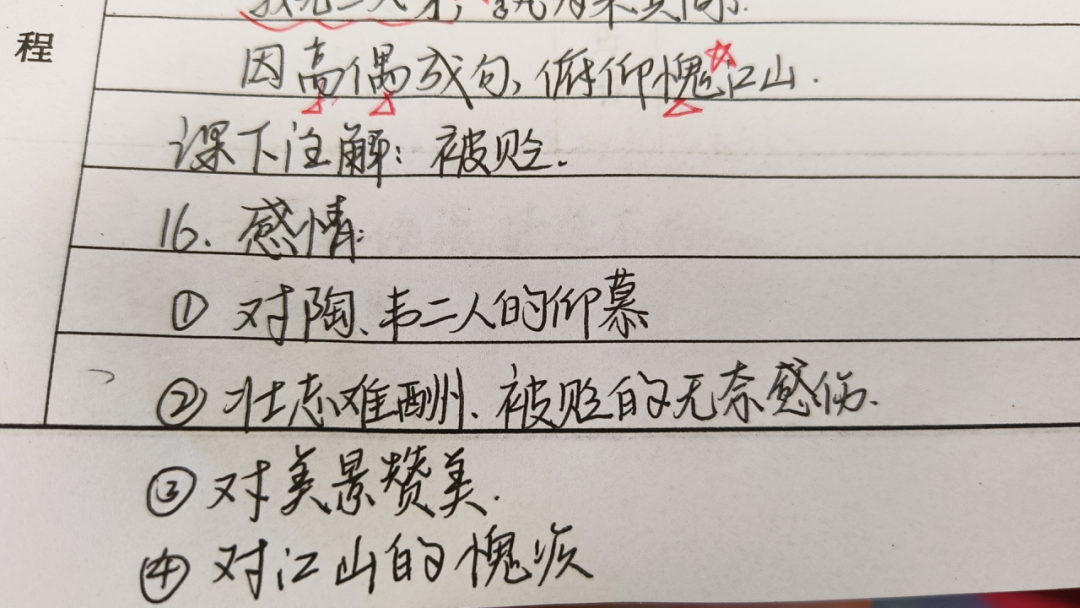 我无二人才，孰为来其间．
因高偶成句，俯仰愧江山．
程
课下注解：被贬．
16．感情：
① 对陶、韦二人的仰慕
② 壮志难酬、被贬的无奈感伤．
③ 对美景赞美．
④ 对江山的愧疚